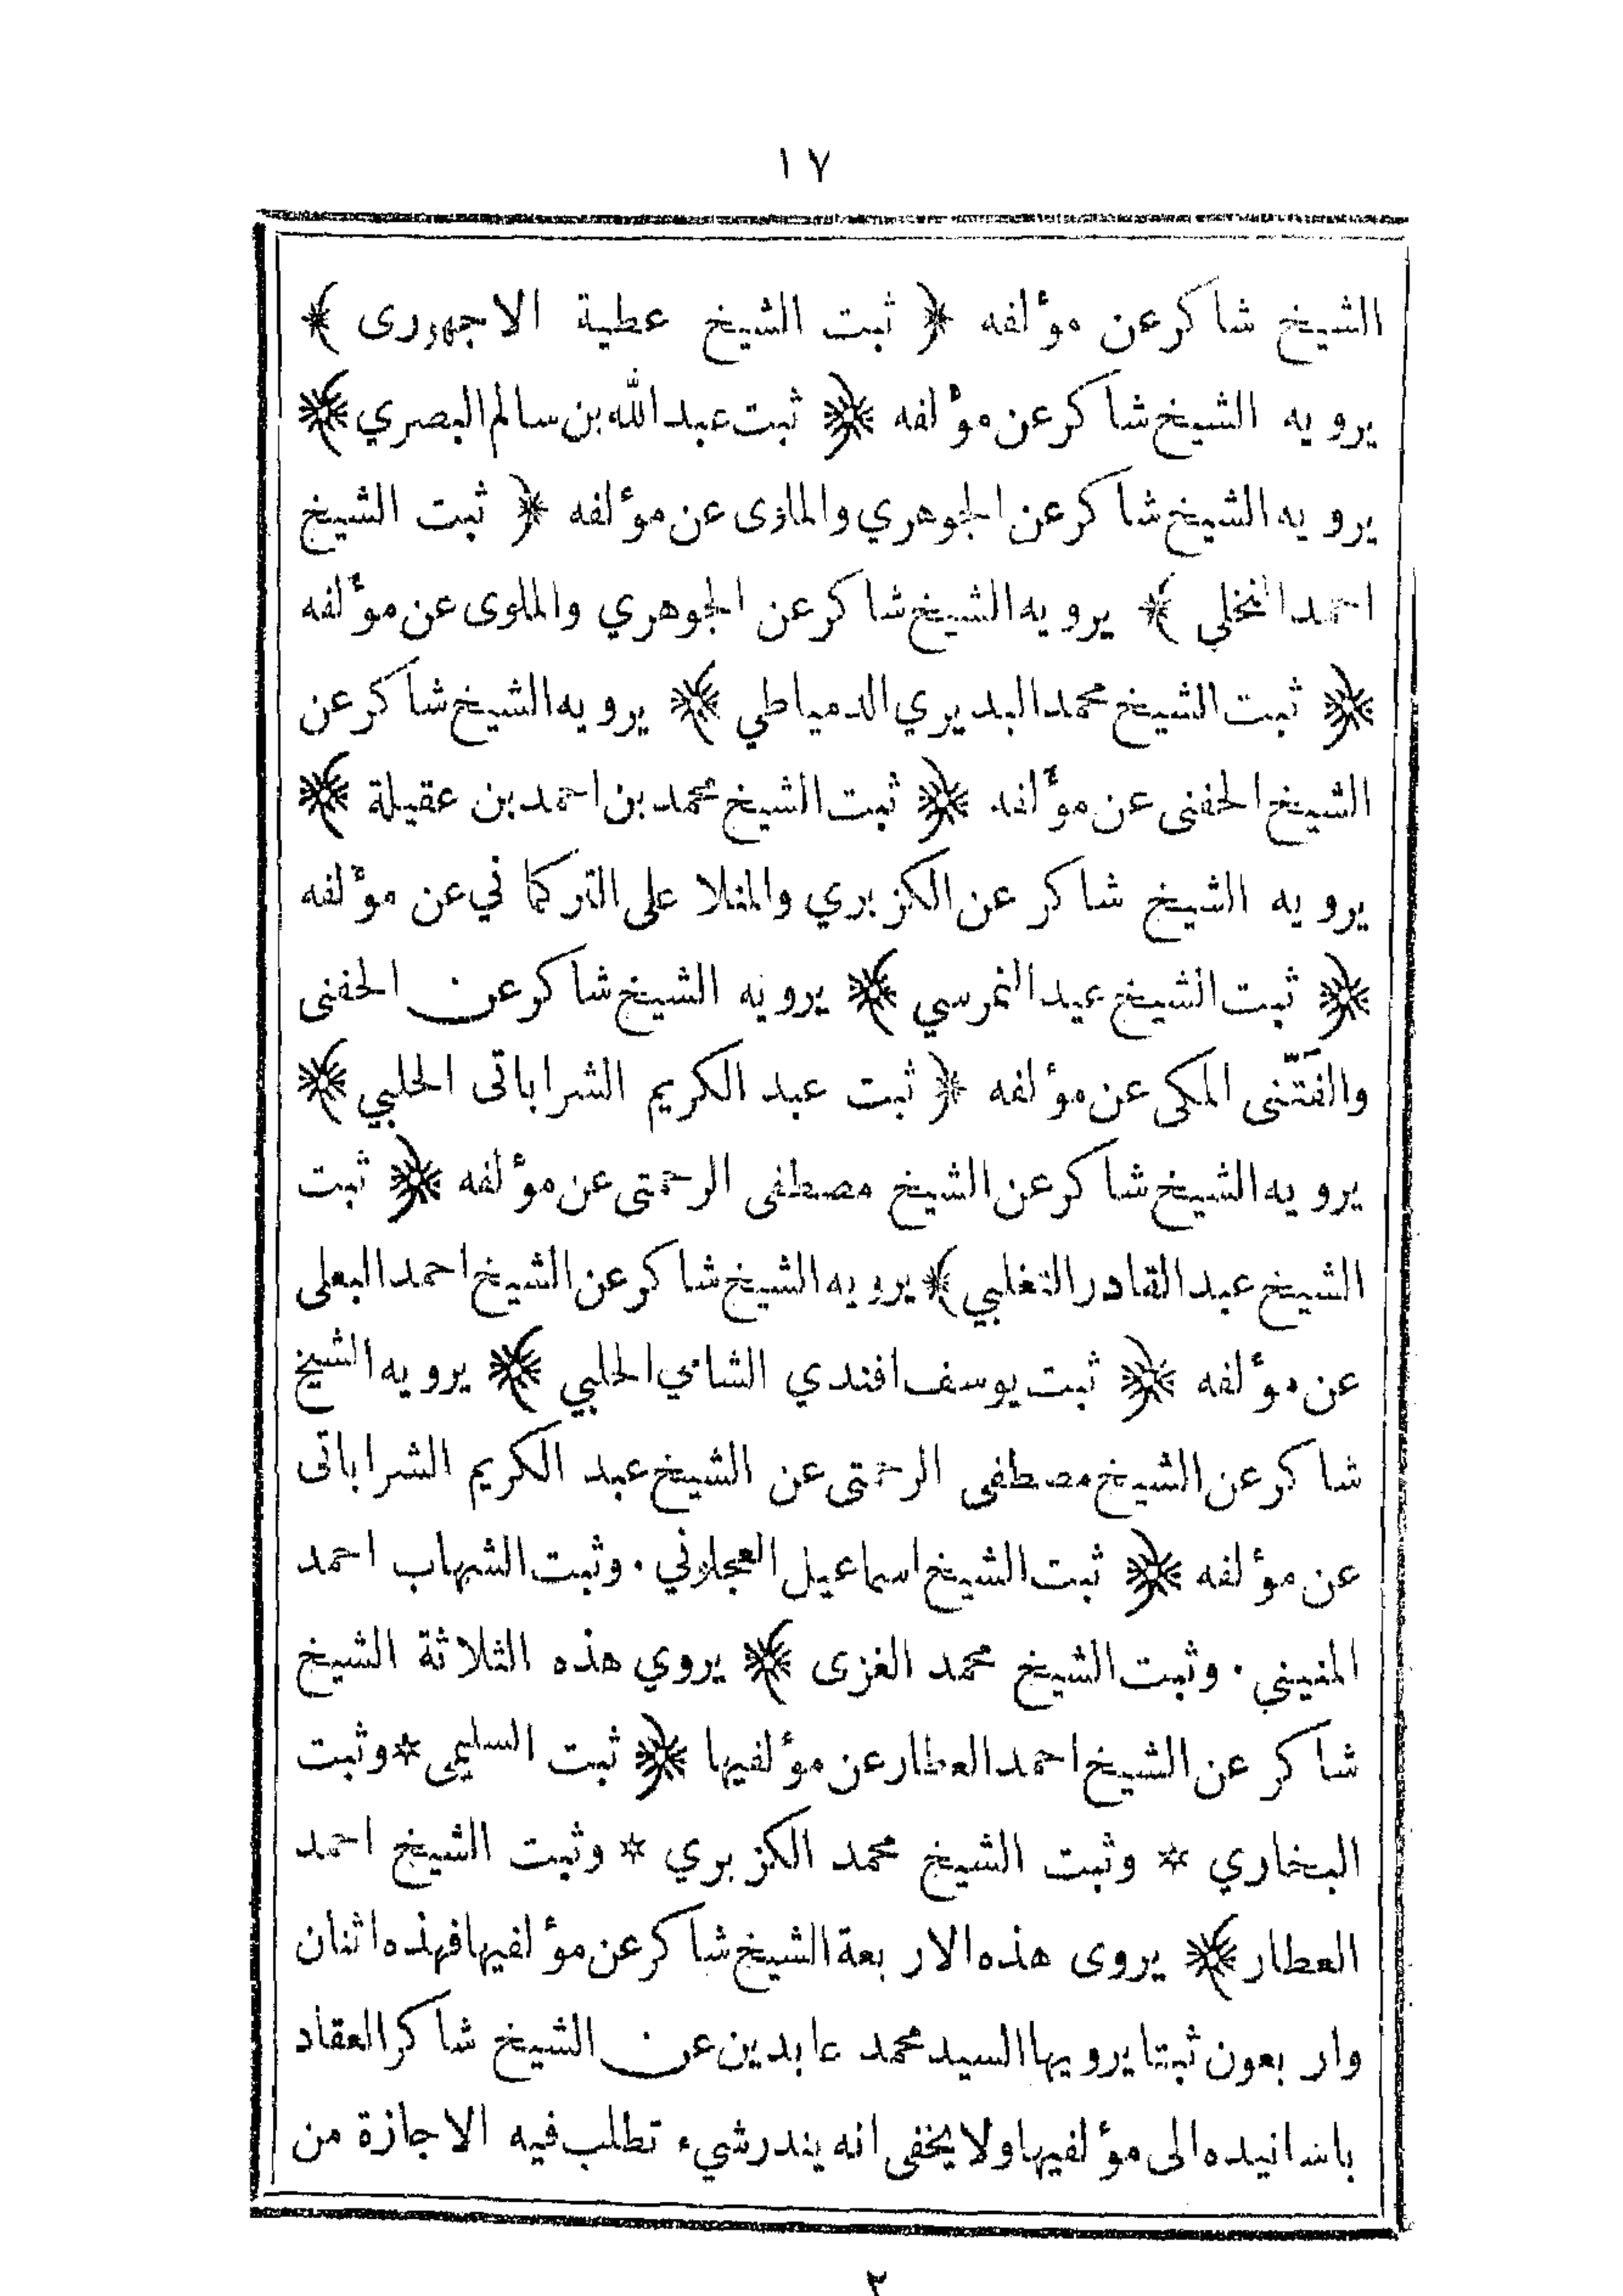 ١٧
الشيخ شاكر عن مؤلفه ﴿ ثبت الشيخ عطية الاجهورى ﴾
يرويه الشيخ شاكر عن مؤلفه ﴿ ثبت عبد الله بن سالم البصري ﴾
يرويه الشيخ شاكر عن الجوهري والملوى عن مؤلفه ﴿ ثبت الشيخ
احمد النخلي ﴾ يرويه الشيخ شاكر عن الجوهري والملوى عن مؤلفه
﴿ ثبت الشيخ محمد البديري الدمياطي ﴾ يرويه الشيخ شاكر عن
الشيخ الحفنى عن مؤلفه ﴿ ثبت الشيخ محمد بن احمد بن عقيلة ﴾
يرويه الشيخ شاكر عن الكزبري والمنلا على التركماني عن مؤلفه
﴿ ثبت الشيخ عيد النمرسي ﴾ يرويه الشيخ شاكر عن الحفنى
والفَتّنى المكى عن مؤلفه ﴿ ثبت عبد الكريم الشراباتى الحلبي ﴾
يرويه الشيخ شاكر عن الشيخ مصطفى الرحمتى عن مؤلفه ﴿ ثبت
الشيخ عبد القادر التغلبي ﴾ يرويه الشيخ شاكر عن الشيخ احمد البعلى
عن مؤلفه ﴿ ثبت يوسف افندي الشامي الحلبي ﴾ يرويه الشيخ
شاكر عن الشيخ مصطفى الرحمتى عن الشيخ عبد الكريم الشراباتى
عن مؤلفه ﴿ ثبت الشيخ اسماعيل العجلوني . وثبت الشهاب احمد
المنيني . وثبت الشيخ محمد الغزى ﴾ يروي هذه الثلاثة الشيخ
شاكر عن الشيخ احمد العطار عن مؤلفيها ﴿ ثبت السليمى * وثبت
البخاري * وثبت الشيخ محمد الكزبري * وثبت الشيخ احمد
العطار ﴾ يروى هذه الاربعة الشيخ شاكر عن مؤلفيها فهذه اثنان
واربعون ثبتا يرويها السيد محمد عابدين عن الشيخ شاكر العقاد
باسانيده الى مؤلفيها ولا يخفى انه يندر شيء تطلب فيه الاجازة من
٢